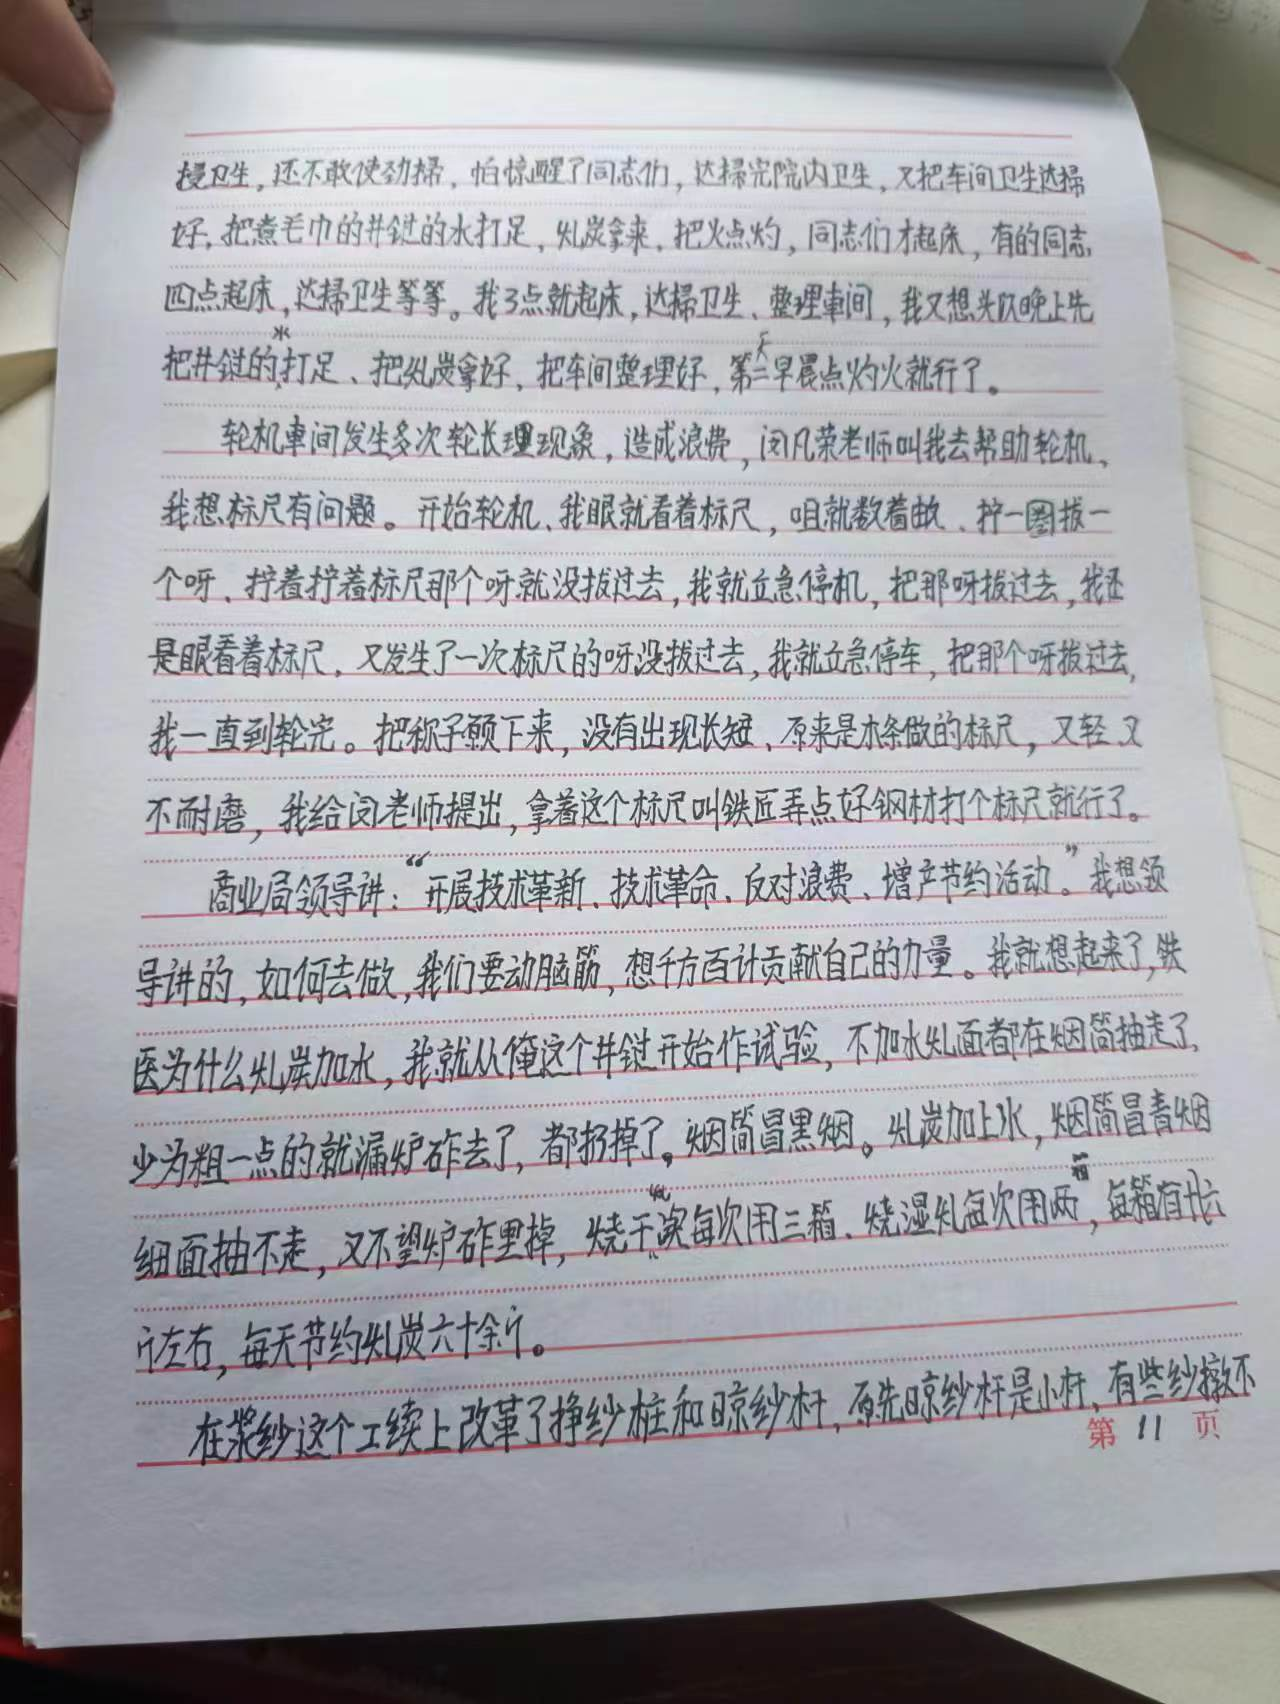 扫卫生，还不敢使劲掃，怕惊醒了同志们，达掃完院内卫生，又把车间卫生达掃
好，把煮毛巾的井鏈的水打足，乢炭拿来，把火点灼，同志们才起床，有的同志
四点起床，达掃卫生等等。我3点就起床，达掃卫生、整理車间，我又想头以晚上先
把井鏈的水打足、把乢炭拿好，把车间整理好，第二天早晨点灼火就行了。
轮机車间发生多次轮长理现象，造成浪费，闵凡荣老师叫我去帮助轮机，
我想标尺有问题。开始轮机、我眼就看着标尺，咀就数着数、拧一圈拔一
个呀、拧着拧着标尺那个呀就没拔过去，我就立急停机，把那呀拔过去，我还
是眼看着标尺，又发生了一次标尺的呀没拔过去，我就立急停车，把那个呀拔过去，
我一直到轮完。把称子顾下来，没有出现长短、原来是木条做的标尺，又轻又
不耐磨，我给闵老师提出，拿着这个标尺叫铁匠弄点好钢材打个标尺就行了。
商业局领导讲：“开展技术革新、技术革命、反对浪费、增产节约活动。”我想领
导讲的，如何去做，我们要动脑筋，想千方百计贡献自己的力量。我就想起来了，铁
医为什么乢炭加水，我就从俺这个井鏈开始作试验，不加水乢面都在烟筒抽走了，
少为粗一点的就漏炉砟去了，都扔掉了。烟筒冒黑烟。乢炭加上水，烟筒冒青烟
细面抽不走，又不望炉砟里掉，烧干乢每次用三箱、烧湿乢每次用两箱，每箱有卅六
斤左右，每天节约乢炭六十余斤。
在浆纱这个工续上改革了挣纱桩和晾纱杆，原先晾纱杆是小杆，有些纱撴不
第 11 页